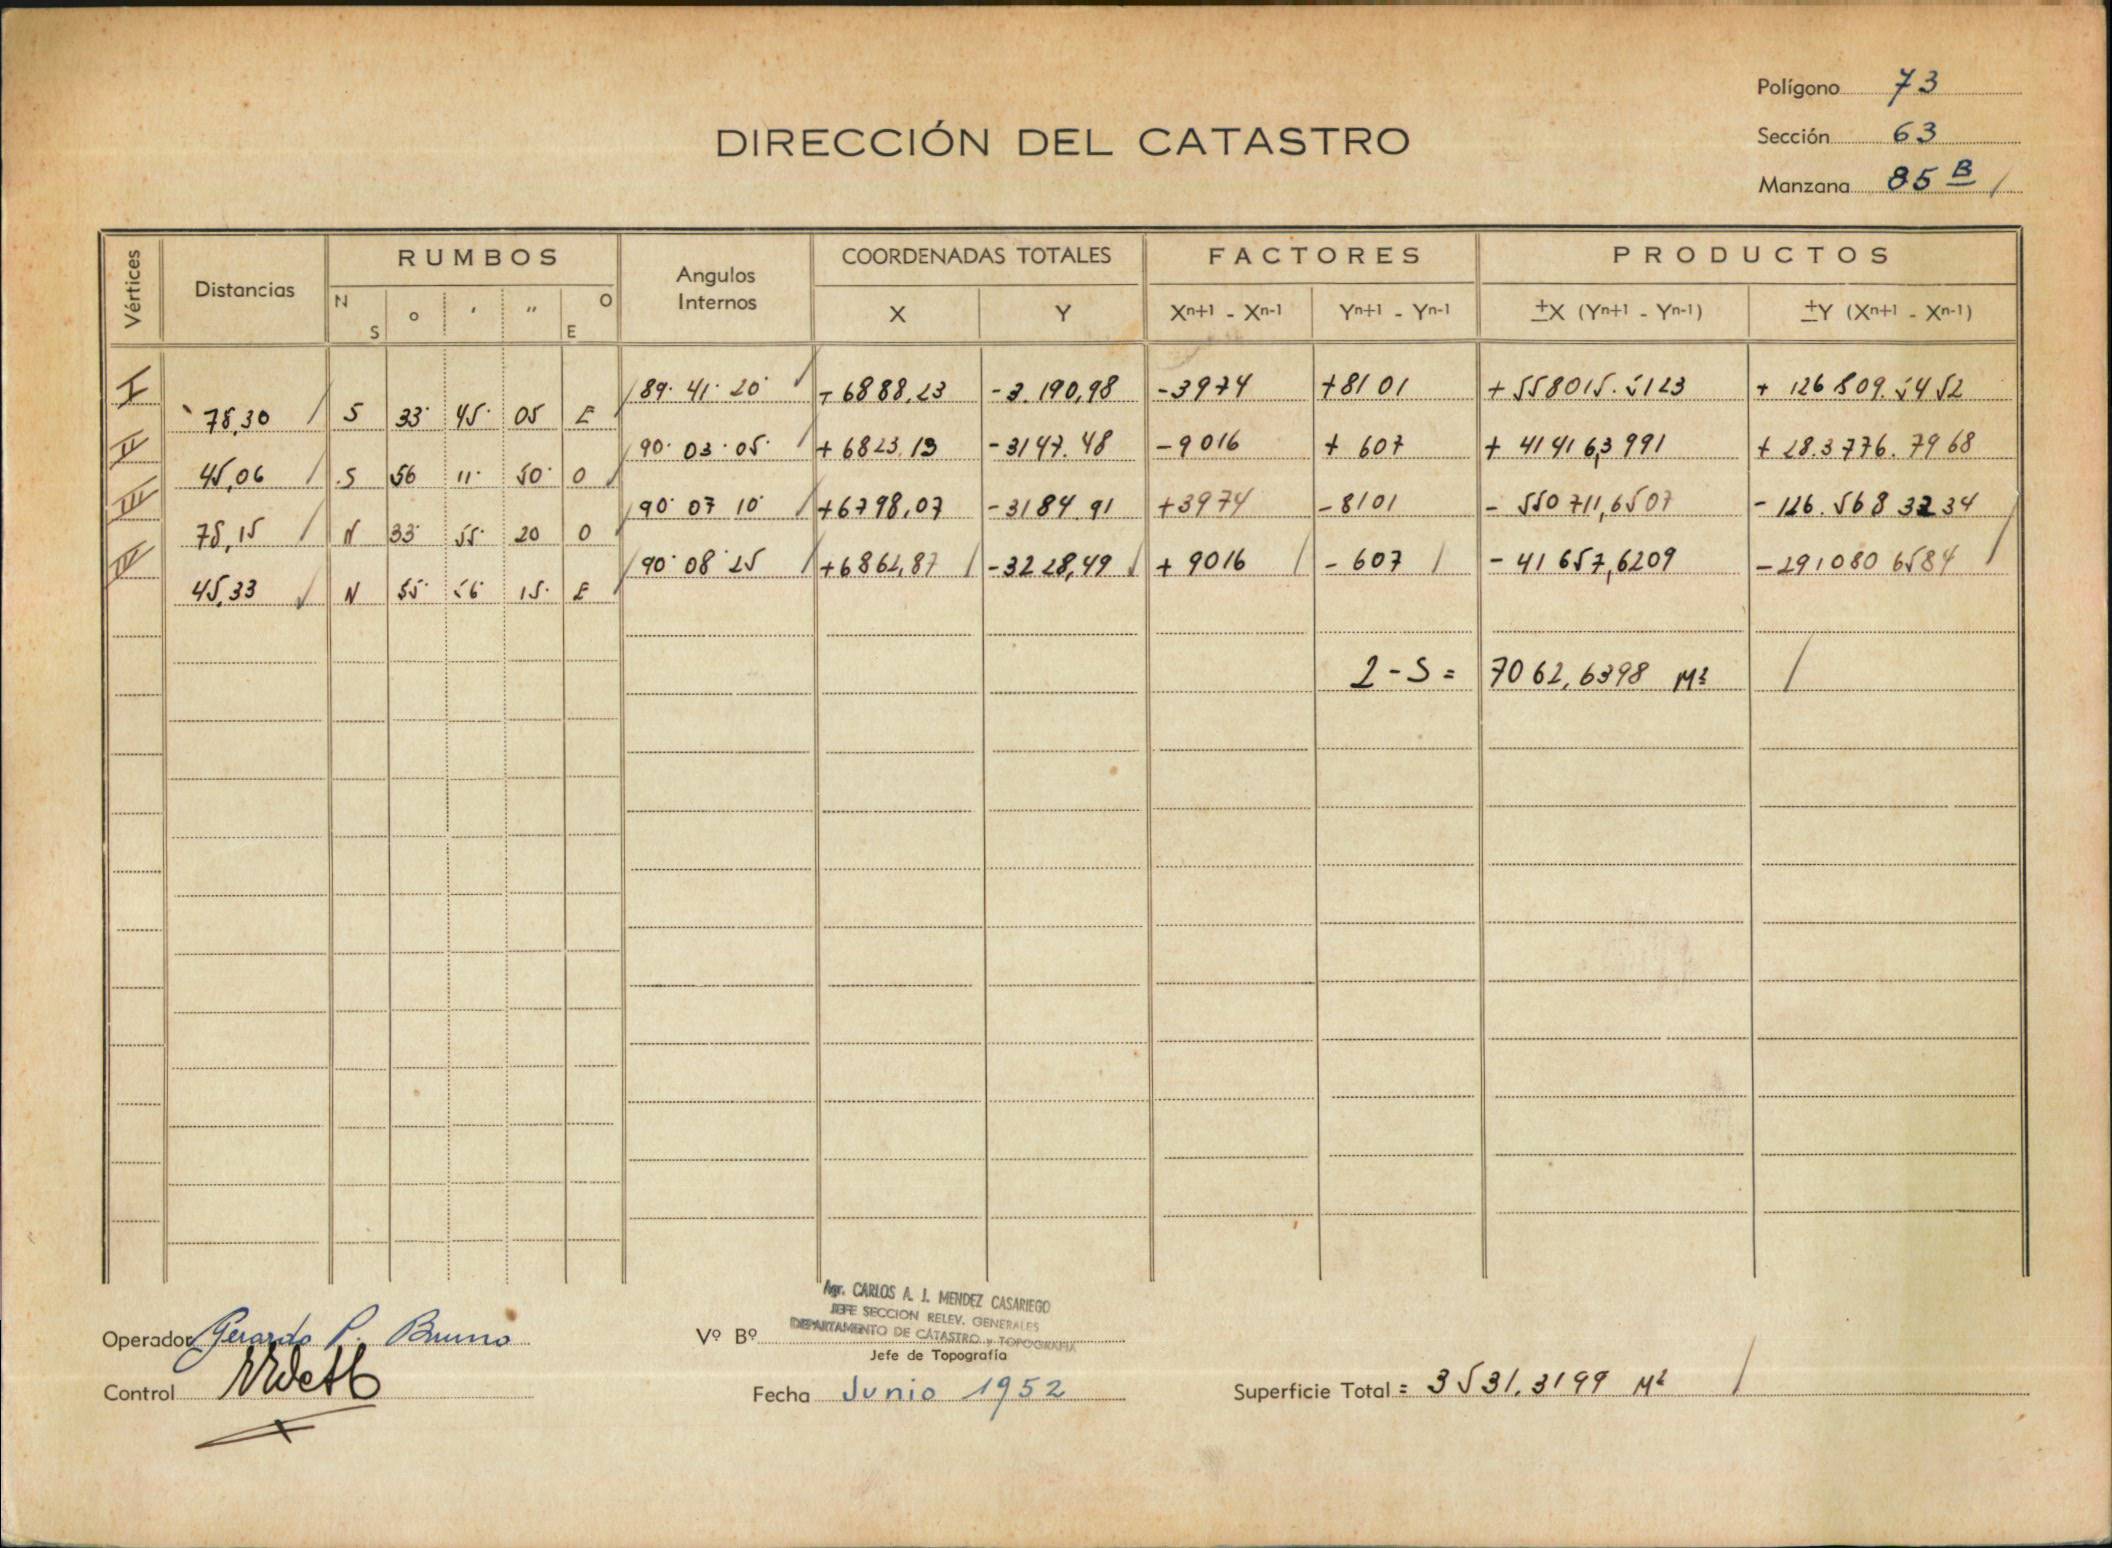 Polígono 73
DIRECCIÓN DEL CATASTRO
Sección 63
Manzana 85 B
Vértices Distancias RUMBOS Angulos Internos COORDENADAS TOTALES FACTORES PRODUCTOS
N S o ' " O E X Y Xn+1 - Xn-1 Yn+1 - Yn-1 ±X (Yn+1 - Yn-1) ±Y (Xn+1 - Xn-1)
I 89· 41· 20· + 6888,23 -3.190,98 -3974 +8101 +558015.5123 + 126809.5452
78,30 S 33· 45· 05 E
II 90· 03· 05· +6823.13 -3147.48 -9016 + 607 + 41416,3991 + 28.3776.7968
45,06 S 56 11· 50· O
III 90· 07 10· +6798,07 -3184.91 +3974 -8101 - 550711,6507 - 126.568 3234
78,15 N 33· 55· 20 O
IV 90· 08· 25 +6862,87 -3228,49 + 9016 - 607 - 41657,6209 -291080 6584
45,33 N 55· 56· 15· E
2-S = 7062,6398 M²
Agr. CARLOS A. J. MENDEZ CASARIEGO
JEFE SECCION RELEV. GENERALES
DEPARTAMENTO DE CATASTRO y TOPOGRAFIA
Operador Gerardo P. Bruno Vº Bº
Jefe de Topografía
Control Fecha Junio 1952 Superficie Total = 3531.3199 M²